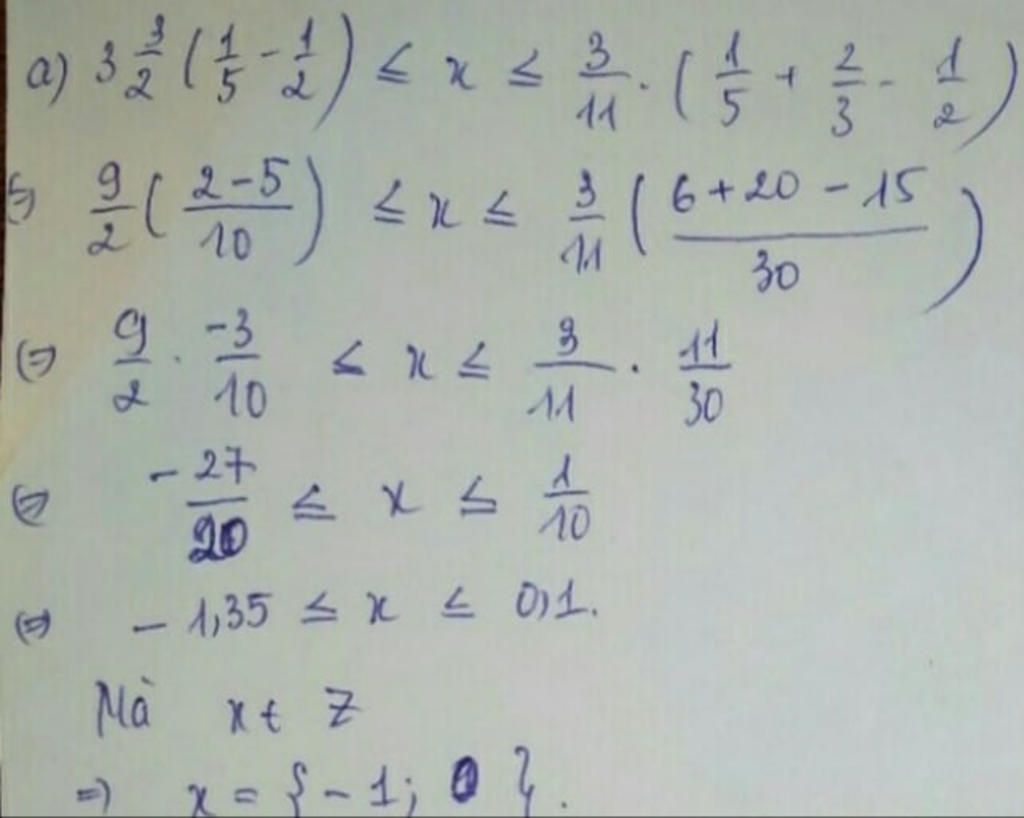 a) 3 3/2 (1/5 - 1/2) ≤ x ≤ 3/11 . (1/5 + 2/3 - 1/2)
(=) 9/2 ( (2-5)/10 ) ≤ x ≤ 3/11 ( (6+20-15)/30 )
(=) 9/2 . -3/10 ≤ x ≤ 3/11 . 11/30
(=) -27/20 ≤ x ≤ 1/10
(=) -1,35 ≤ x ≤ 0,1.
Mà x ∈ Z
=) x = {-1; 0}.